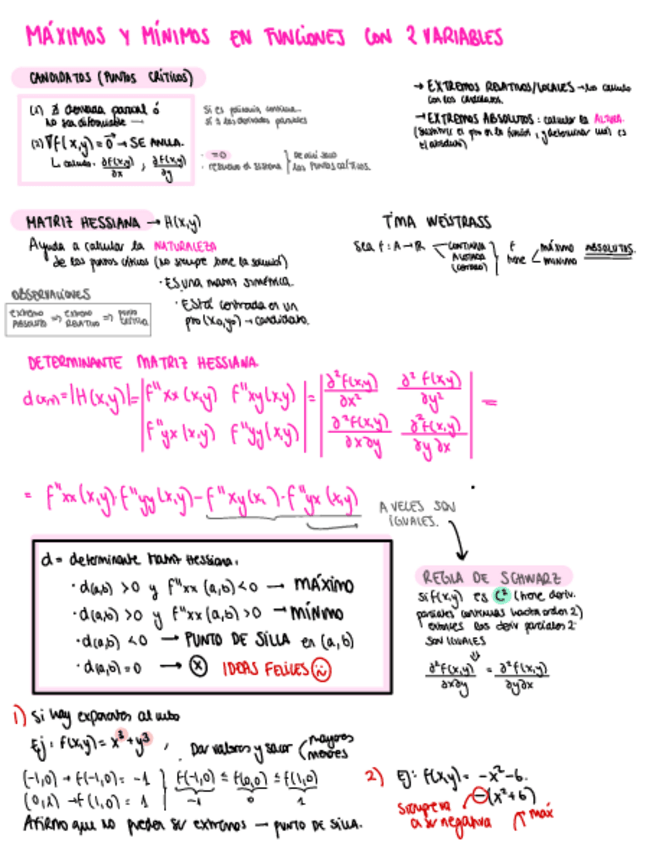 MÁXIMOS Y MÍNIMOS EN FUNCIONES CON 2 VARIABLES
CANDIDATOS (PUNTOS CRÍTICOS)
(1) ∄ derivada parcial ó
no sea diferenciable →
(2) ∇f(x,y) = 0⃗ → SE ANULA.
↳ calculo. ∂f(x,y)/∂x , ∂f(x,y)/∂y
Si es polinomio, continua...
sí ∃ las derivadas parciales
· = 0
· resuelvo el sistema } De aquí saco los puntos críticos.
→ EXTREMOS RELATIVOS/LOCALES → los calculo
con los candidatos.
→ EXTREMOS ABSOLUTOS: calcular la ALTURA.
(sustituir el pto en la función, y determinar cuál es
el absoluto)
MATRIZ HESSIANA → H(x,y)
Ayuda a calcular la NATURALEZA
de los puntos críticos (no siempre tiene la solución)
· Es una matriz simétrica.
· Está centrada en un
pto (x₀,y₀) → candidato.
OBSERVACIONES
EXTREMO ABSOLUTO ⇒ EXTREMO RELATIVO ⇒ PUNTO CRÍTICO
TMA WEISTRASS
Sea f: A → R CONTINUA ACOTADA (CERRADO) } f tiene máximo mínimo ABSOLUTOS.
DETERMINANTE MATRIZ HESSIANA
d(x,y) = |H(x,y)| = | f''xx (x,y) f''xy (x,y) | = | ∂²f(x,y)/∂x² ∂²f(x,y)/∂y² | =
| f''yx (x,y) f''yy (x,y) | | ∂²f(x,y)/∂x∂y ∂²f(x,y)/∂y∂x |
= f''xx (x,y) · f''yy (x,y) − f''xy (x, ) · f''yx (x,y)
A VECES SON
IGUALES.
d = determinante matriz Hessiana.
· d(a,b) > 0 y f''xx (a,b) < 0 → MÁXIMO
· d(a,b) > 0 y f''xx (a,b) > 0 → MÍNIMO
· d(a,b) < 0 → PUNTO DE SILLA en (a,b)
· d(a,b) = 0 → ⓧ IDEAS FELICES
REGLA DE SCHWARZ
Si f(x,y) es C² (tiene deriv.
parciales continuas hasta orden 2)
entonces las deriv parciales 2ª
SON IGUALES
⇓
∂²f(x,y)/∂x∂y = ∂²f(x,y)/∂y∂x
1) Si hay exponentes al cubo
Ej: f(x,y) = x³ + y³ , Dar valores y sacar mayores menores
(-1,0) → f(-1,0) = -1
(0,1) → f(1,0) = 1
f(-1,0) ≤ f(0,0) ≤ f(1,0)
-1 0 1
Afirmo que no pueden ser extremos → PUNTO DE SILLA.
2) Ej: f(x,y) = -x² - 6.
-(x² + 6)
siempre va
a ser negativa
máx